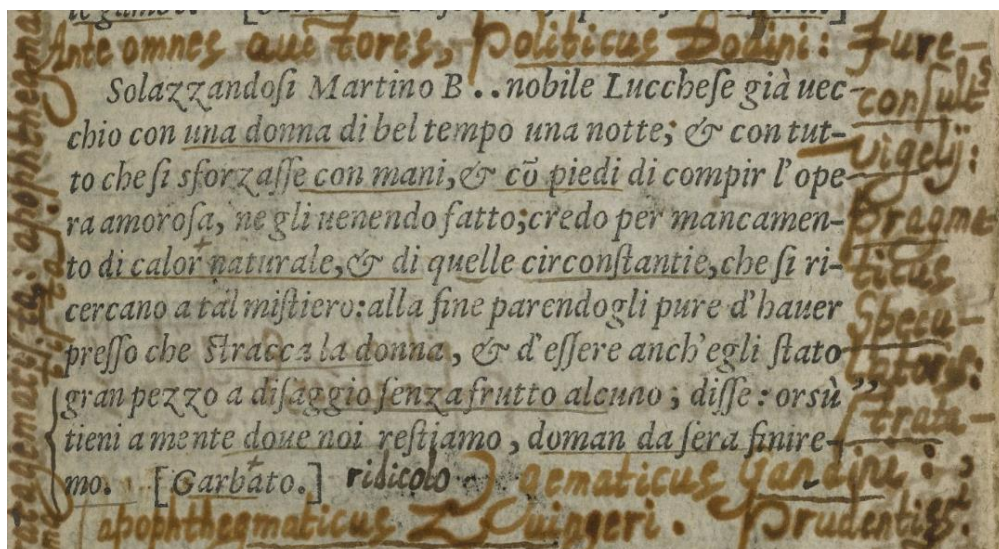 Ante omnes auctores, Politicus Bodini: Jure-
consultus
Vigelij:
Pragma-
ticus
Specu-
latoris:
strata-
gematicus Gandini:
apophthegmaticus Zuingeri. Prudentiss.
Solazzandoſi Martino B .. nobile Luccheſe già uec-
chio con una donna di bel tempo una notte; & con tut-
to che ſi sforzaſſe con mani, & cō piedi di compir l'ope
ra amoroſa, ne gli uenendo fatto; credo per mancamen-
to di calor naturale, & di quelle circonſtantie, che ſi ri-
cercano a tal miſtiero: alla fine parendogli pure d'hauer
preſſo che ſtracca la donna, & d'eſſere anch'egli ſtato
gran pezzo a diſaggio ſenza frutto alcuno; diſſe: orsù
tieni a mente doue noi reſtiamo, doman da ſera finire-
mo. [Garbato.] ridicolo